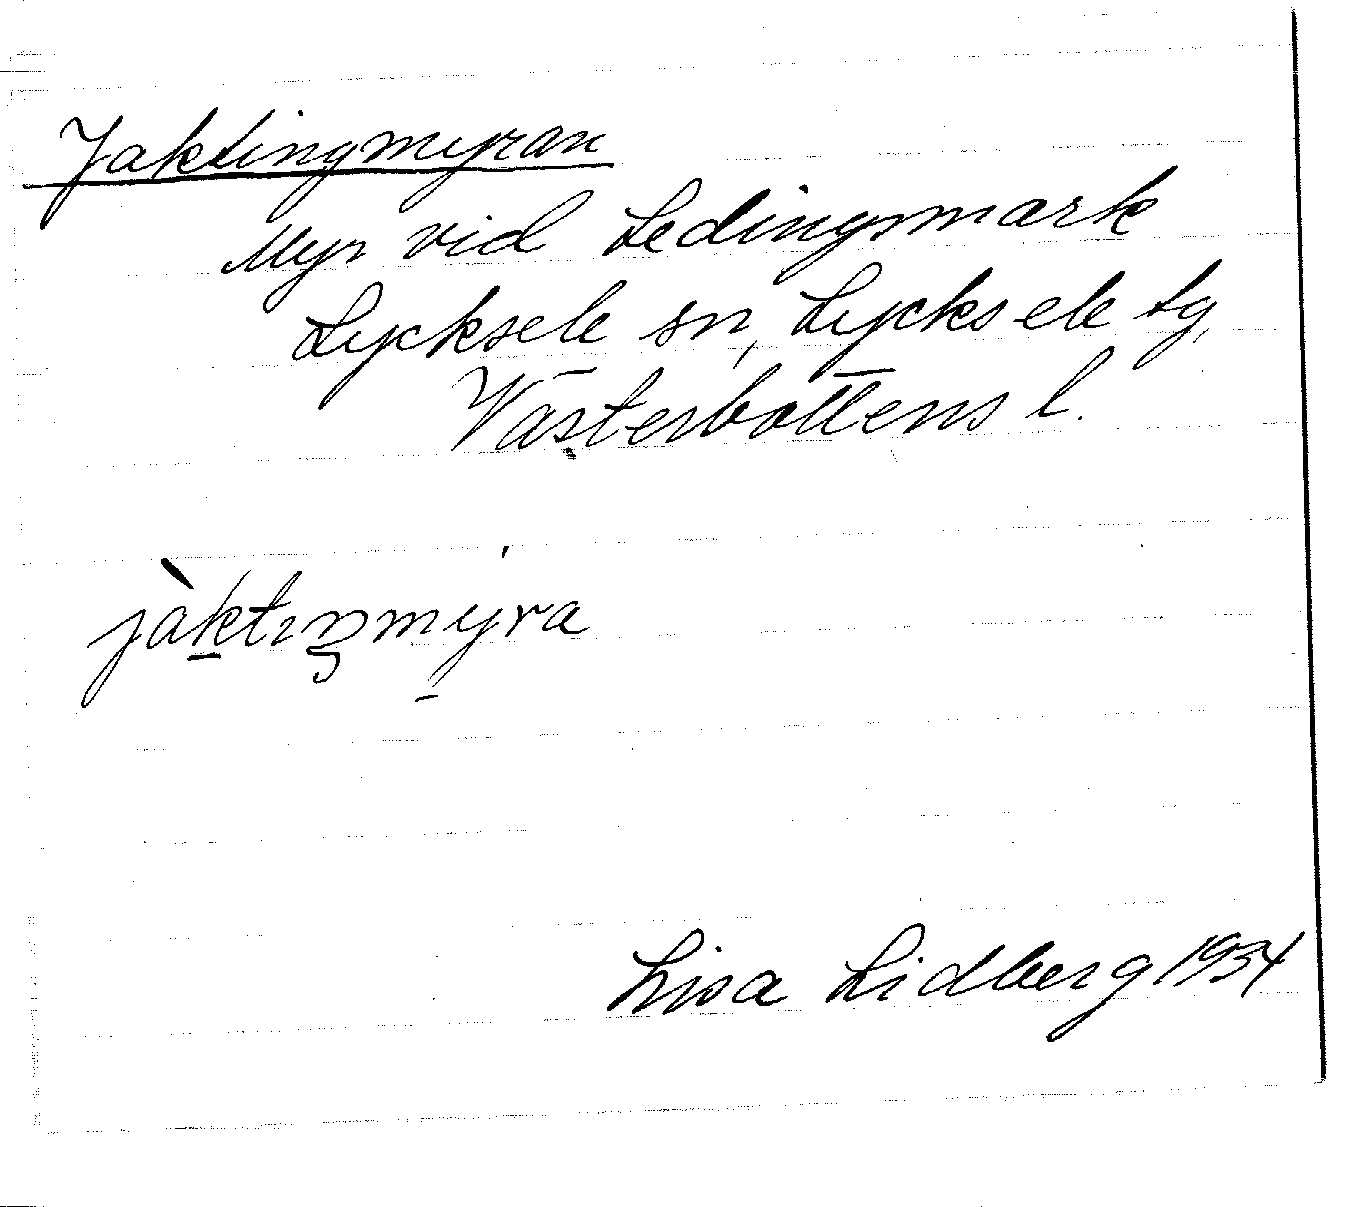 Jaktingmyran
Myr vid Ledingsmark
Lycksele sn, Lycksele tg,
Västerbottens l.
jàktıŋmýra
Lisa Lidberg 1934